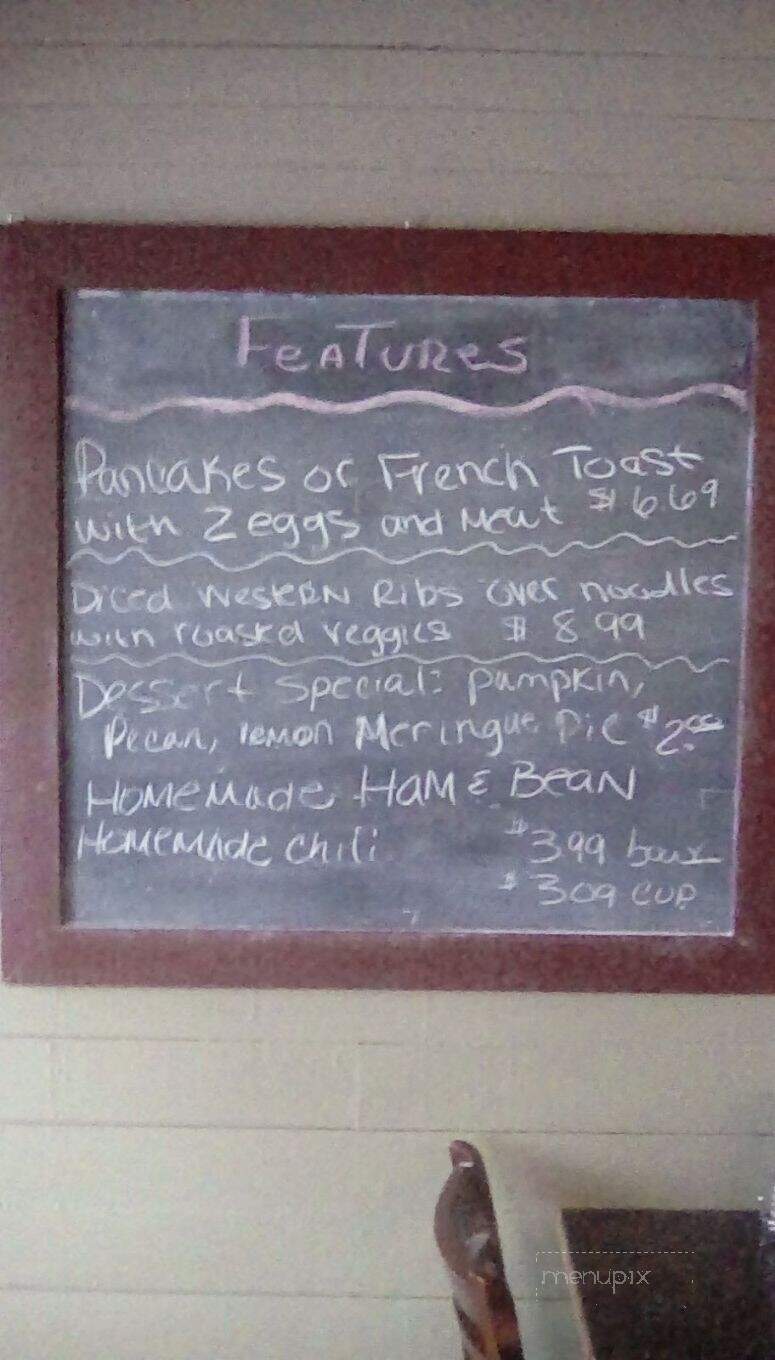 FEATURES
Pancakes or French Toast
with 2 eggs and meat $6.69
Diced Western Ribs over noodles
with roasted veggies $8.99
Dessert Special: pumpkin,
Pecan, lemon Meringue Pie $2.00
HOMEMADE HAM & BEAN
HOMEMADE chili $3.99 bowl
$3.09 cup
menupix